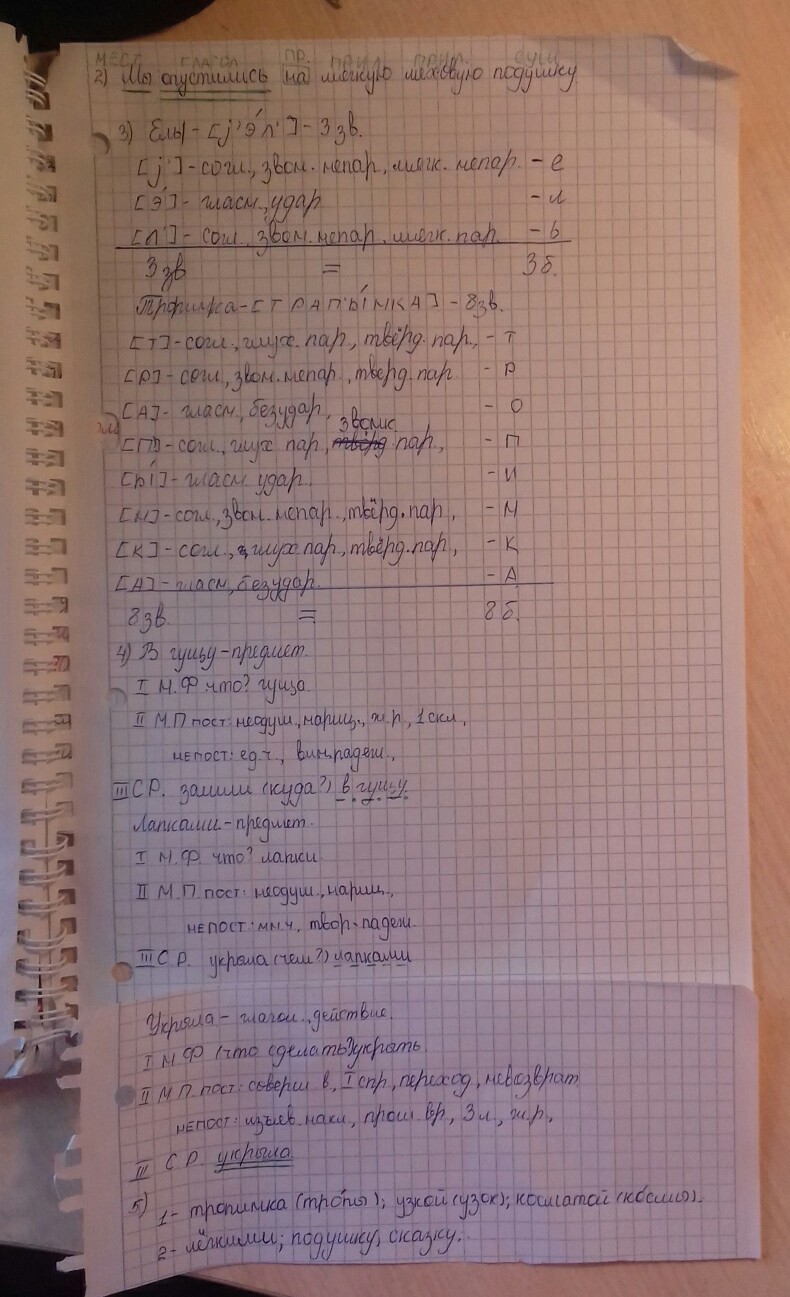 МЕСТ. ГЛАГОЛ ПР. ПРИЛ. ПРИЛ. СУЩ.
2) Мы опустились на мягкую меховую подушку.
3) Ель - [j'э́л'] - 3 зв.
[j'] - согл., звон. непар., мягк. непар. - е
[э́] - гласн., удар. - л
[л'] - согл., звон. непар., мягк. пар. - ь
3 зв = 3 б.
Тропинка - [ТРАПЫ́НКА] - 8 зв.
[Т] - согл., глух. пар., твёрд. пар., - т
[Р] - согл., звон. непар., твёрд. пар. - р
[А] - гласн., безудар., - о
звонк.
[П] - согл., глух пар., твёрд пар., - п
[Ы́] - гласн. удар. - и
[Н] - согл., звон. непар., твёрд. пар., - н
[К] - согл., глух. пар., твёрд. пар., - к
[А] - гласн., безудар. - а
8 зв. = 8 б.
4) В гущу - предмет.
I Н.Ф что? гуща.
II М.П пост: неодуш., нариц., ж.р., 1 скл.,
непост: ед.ч., вин. падеж.,
III С.Р. зашли (куда?) в гущу
Лапками - предмет.
I Н.Ф. что? лапки
II М.П. пост: неодуш., нариц.,
непост: мн.ч, твор. падеж.
III С.Р. укрыла (чем?) лапками
Укрыла - глагол., действие.
I Н.Ф (что сделать?) укрыть.
II М.П. пост: соверш в, I спр., переход., невозврат
непост: изъяв. накл, прош. вр., 3 л., ж.р.,
III С.Р. укрыла.
5) 1 - тропинка (тро́пы); узкой (узок); косматой (ко́смы).
2 - лёгкими; подушку, сказку.